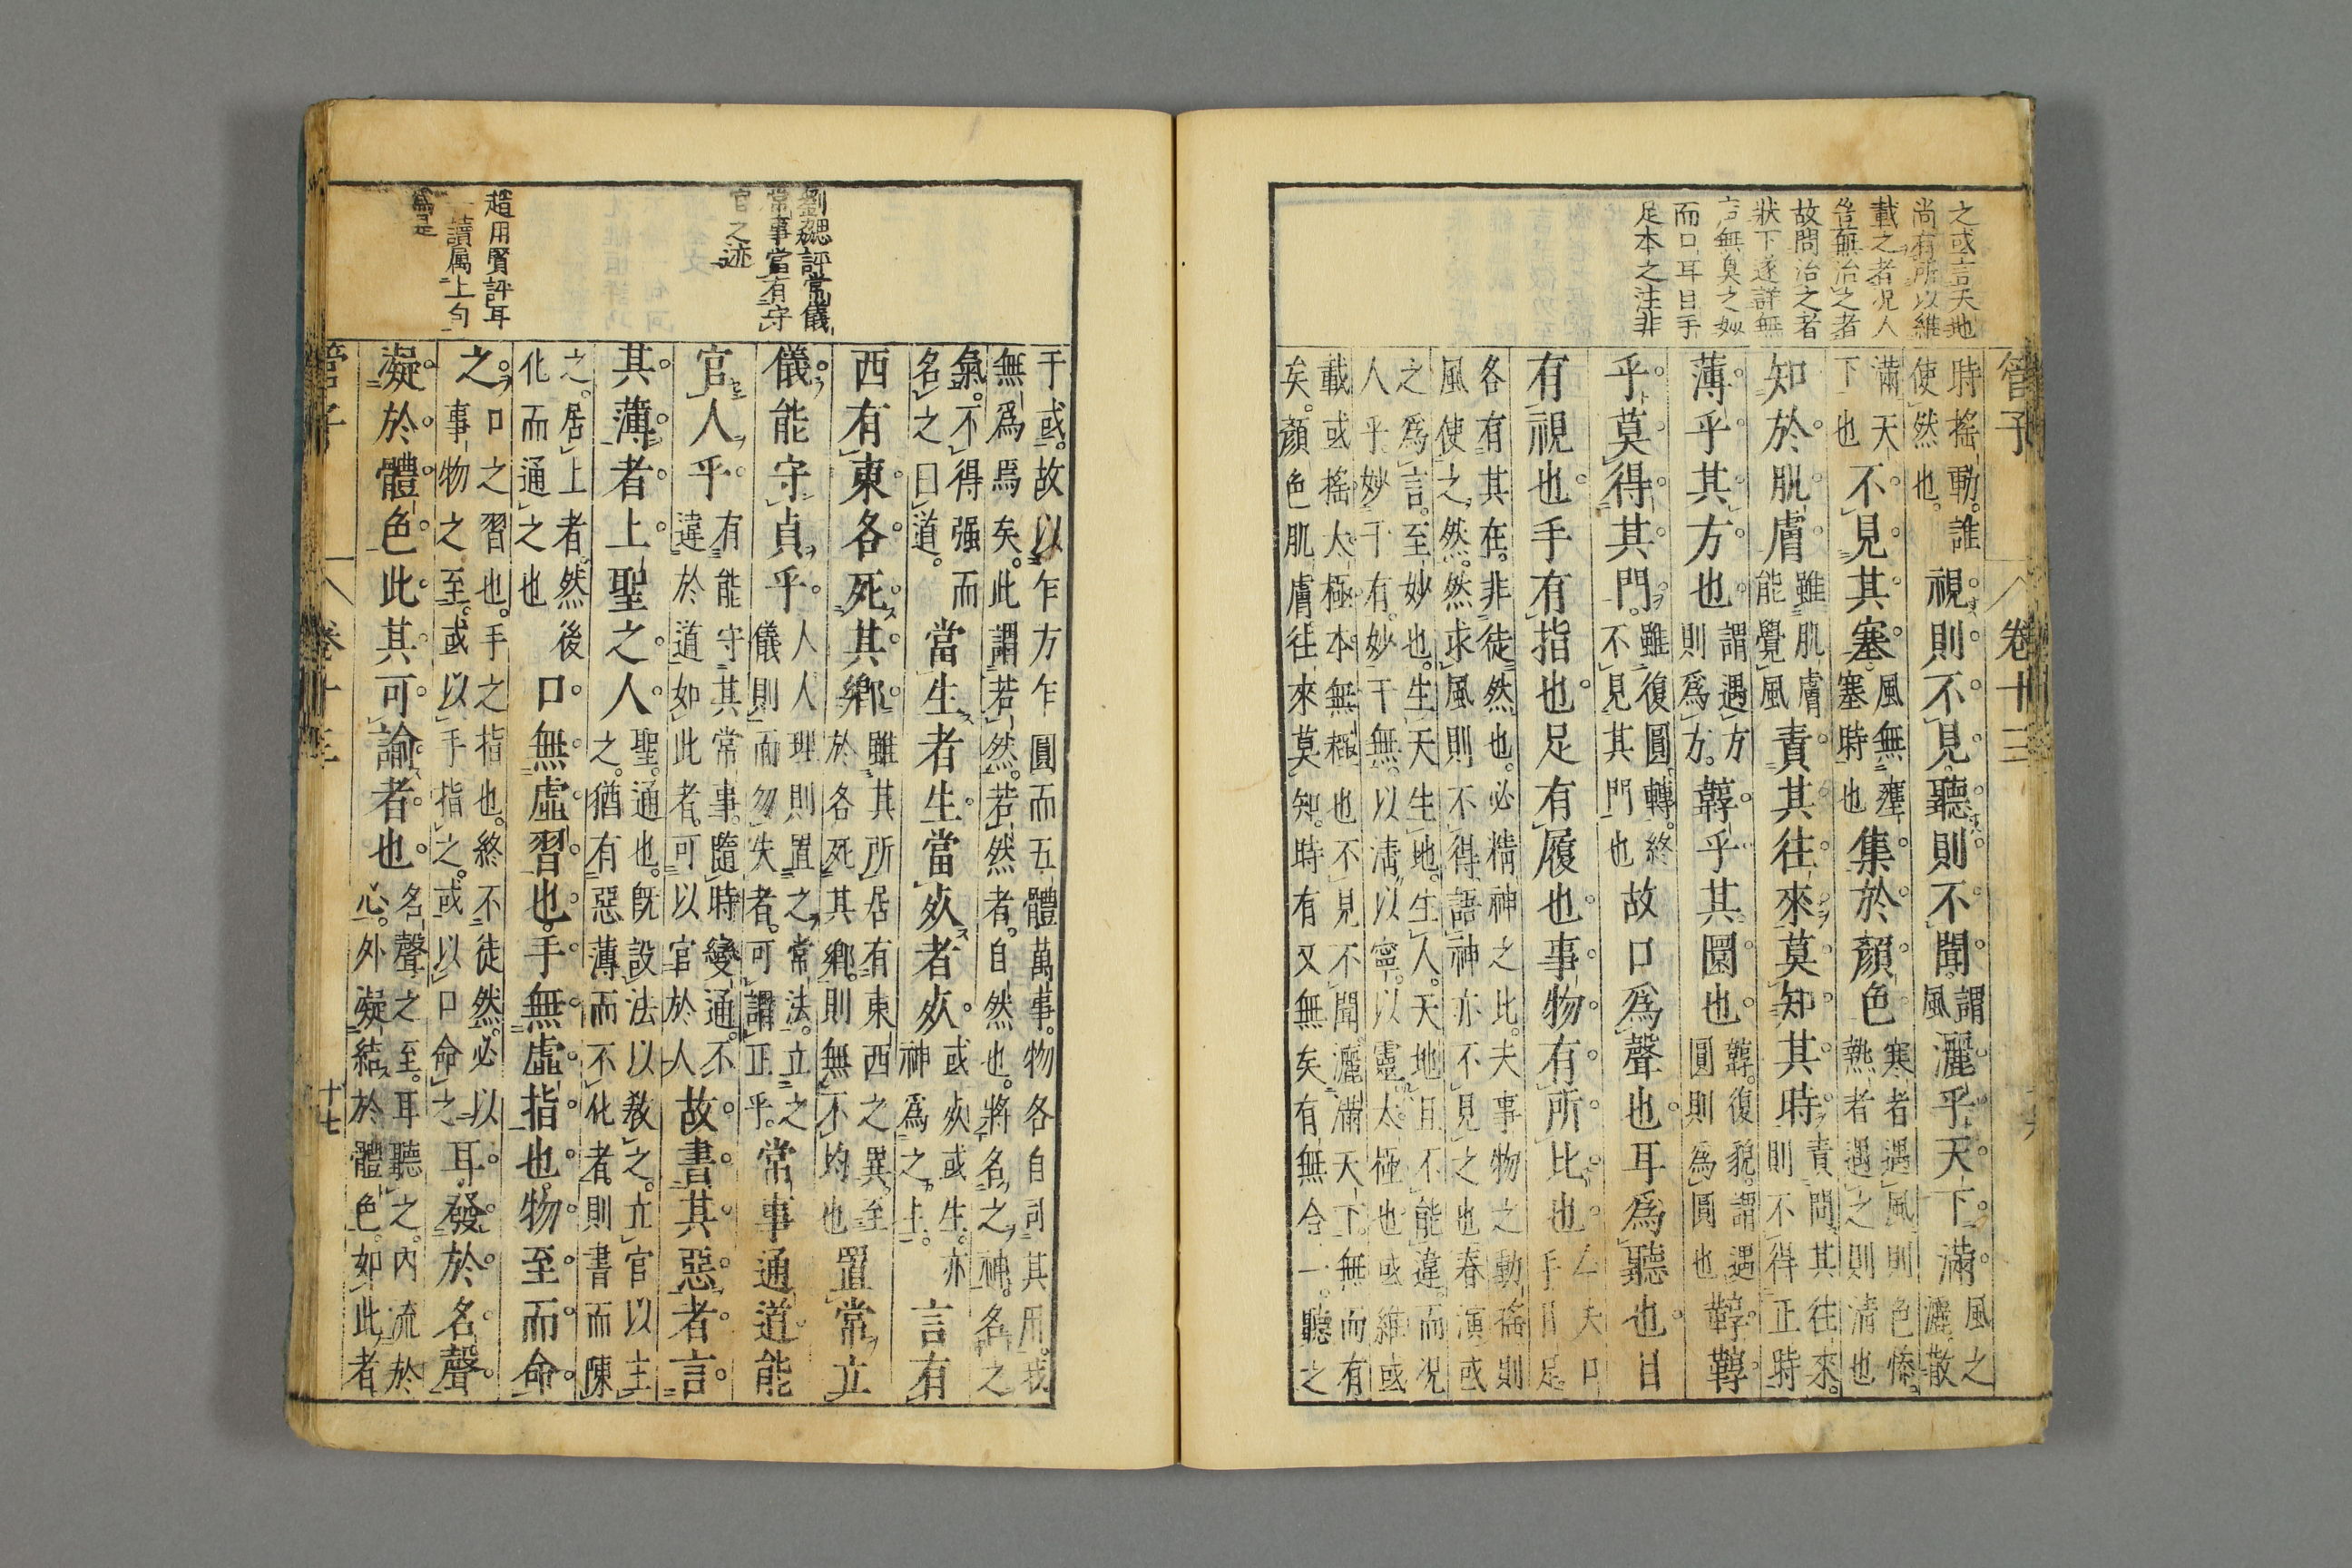 之或言天地
尚有所以維
載之者况人
皆無治之者
故問治之者
狀下遂詳無
言無臭之妙
而口耳目手
足本之注非
管子 卷十三
時搖動。誰使然也。視則不見。聽則不聞。謂風灑乎天下滿。風之灑散
滿天下也不見其塞。風無壅塞時也集於顏色寒者遇風則色慘。熱者遇之則清也
知於肌膚雖肌膚能覺風責其往來。莫知其時。責問其往來。則不得正時
薄乎其方也謂遇方則爲方。韕乎其圜也。韕。復貌。謂遇圓則爲圓也韕韕
乎。莫得其門。雖復圓轉。終不見其門也故口爲聲也。耳爲聽也。目
有視也。手有指也。足有履也。事物有所比也。今夫口手目足
各有其在。非徒然也。必精神之比。夫事物之動搖則風使之然。然求風則不得語神亦不見之也春演或
之爲言。至妙也。生天生地。生人。天地且不能違。而况人乎妙于有。妙于無。以清以寧。以靈。太極也或維或
載或搖。太極本無極也不見不聞灑滿天下。無而有矣。顏色肌膚往來莫知。時有又無矣有無合一。聽之
劉勰評常儀
常事當有守
官之迹
趙用賢評耳
一讀属上句
爲是
于或。故以乍方乍圓而五體萬事。物各自司其用。我無爲焉矣。此謂若然。若然者。自然也。將名之神。名之
氣。不得强而名之曰道。當生者生。當死者死。或死或生。亦神爲之主。言有
西有東。各死其鄉。雖其所居有東西之異。至於各死其鄉。則無不均也置常立
儀。能守貞乎。人人理則置之常法。立之儀則而勿失者。可謂正乎。常事通道。能
官人乎。有能守其常事。隨時變通。不違於道如此者。可以官於人故書其惡者。言
其薄者。上聖之人。聖。通也。既設法以教之。立官以主之。猶有惡薄而不化者。則書而陳
之。居上者。然後化而通之也口無虛習也。手無虛指也。物至而命
之。口之習也。手之指也。終不徒然。必以事物之至。或以手指之。或以口命之耳。發於名聲。
凝於體色。此其可諭者也名聲之至。耳聽之。內流於心。外凝結於體色。如此者
管子 卷十三 十七